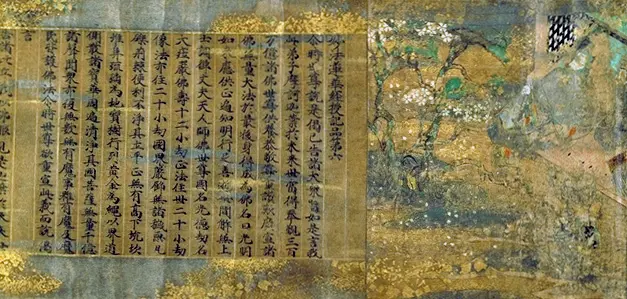 妙法蓮華經授記品第六
尒時世尊說是偈已告諸大衆唱如是言我
此弟子摩訶迦葉於未來世當得奉覲三百
万億諸佛世尊供養恭敬尊重讚歎廣宣諸
佛無量大法於最後身得成為佛名曰光明
如來應供正遍知明行足善逝世間解無上
士調御丈夫天人師佛世尊國名光德劫名
大莊嚴佛壽十二小劫正法住世二十小劫
像法亦住二十小劫國界嚴飾無諸穢惡瓦
礫荊棘便利不淨其土平正無有高下坑坎
堆阜琉璃為地寶樹行列黃金為繩以界道
側散諸寶華周遍清淨其國菩薩無量千億
諸聲聞衆亦復無數無有魔事雖有魔及魔
民皆護佛法尒時世尊欲重宣此義而說偈
言
告諸比丘我以佛眼見是迦葉於未來世